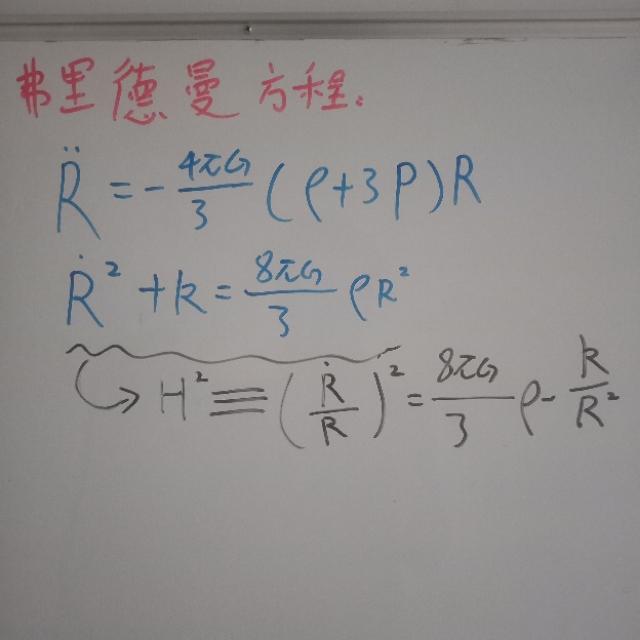 弗里德曼方程:
R̈ = - 4πG/3 (ρ+3P)R
Ṙ² + k = 8πG/3 ρR²
↪ H² ≡ (Ṙ/R)² = 8πG/3 ρ - k/R²